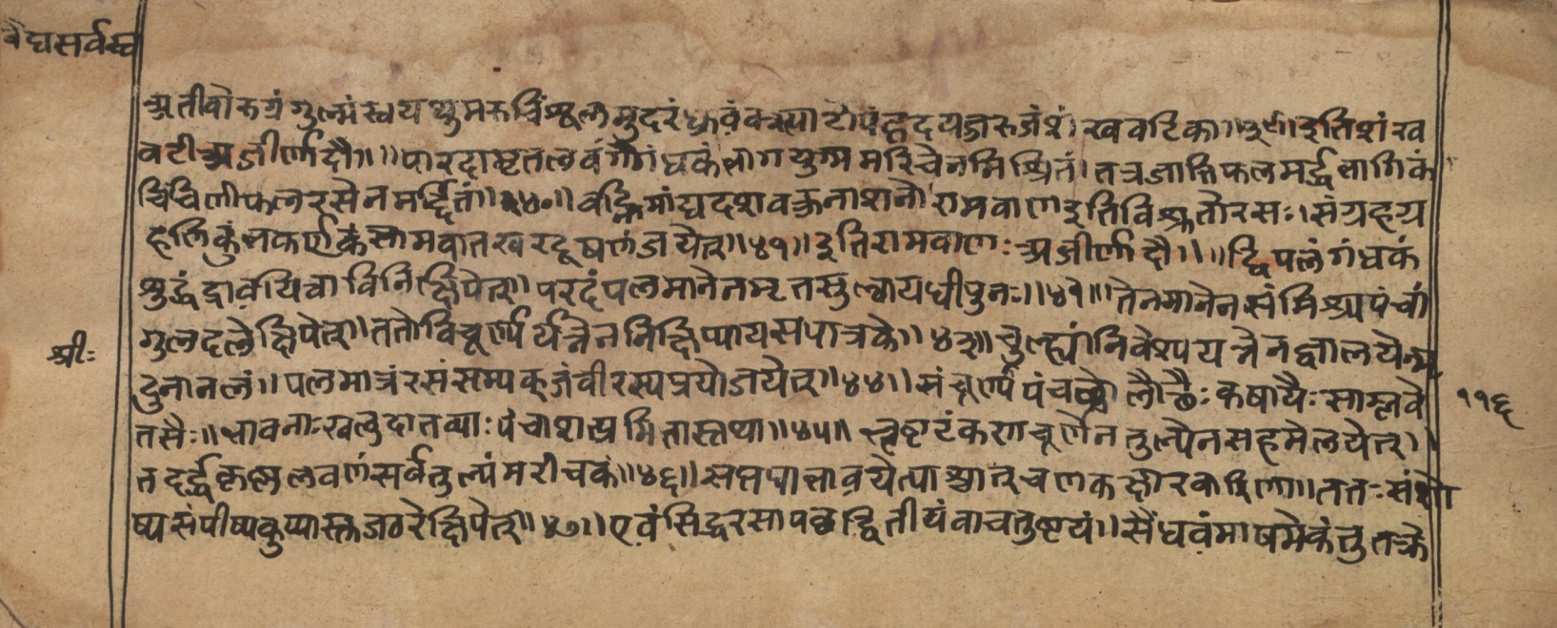 वैद्यसर्वस्व
अतीवोरुग्रं गुल्मं स्वयथुमरुचिं शूलमुदरं ध्रुवं हृदयजरुजं शंखवटिका॥३९॥ इति शंख
वटी अजीर्णादौ॥ ॥पारदामृतलवंगगंधकं भागयुग्ममरिचेनमिश्रितं। तत्रजातिफलमर्द्धभागिकं
चिंचिलीफलरसेनमर्द्दितं॥४०॥ वह्निमांद्यदशवक्त्रनाशनो रामवाणइतिविश्रुतोरसः। संग्रहग्र
हलिकुंभकर्णकंसामवातखरदूषणंजयेत्॥४१॥ इतिरामवाणः अजीर्णादौ॥ ॥द्विपलंगंधकं
शुद्धंद्रावयित्वाविनिक्षिपेत्॥ परदंपलमानेनमृतसुल्वायषीपुनः॥४१॥ तेनमानेनसंमिश्र्यपंचां
गुलदलेक्षिपेत्॥ ततोविचूर्ण्ययत्नेननिक्षिप्यायसपात्रके॥४३॥ चुल्ह्यांनिवेश्पयत्नेनज्वालयेन्मृ
दुनानलं॥ पलमात्रंरसंसम्पक्जंवीरस्यप्रयोजयेत्॥४४॥ संचूर्ण्यपंचकोलोत्थैः कषायैः साम्लवे
तसैः॥ भावनाःखलुदातव्याःपंचाशत्प्रमितास्तथा॥४५॥ भृष्टटंकणचूर्णेनतुल्येनसहमेलयेत्॥
तदर्द्धकृष्णलवणंसर्वतुल्यंमरीचकं॥४६॥ सप्तधाभावयेत्पाश्चात्चणकक्षारवारिणा॥ ततःसंशो
ष्यसंपीष्यकुप्यास्तजठरेक्षिपेत्॥४७॥ एवंसिद्धरसा द्वितीयंवाचतुष्टयं॥ सैंधवंमाषमेकंतुतक्रे
श्रीः
११६